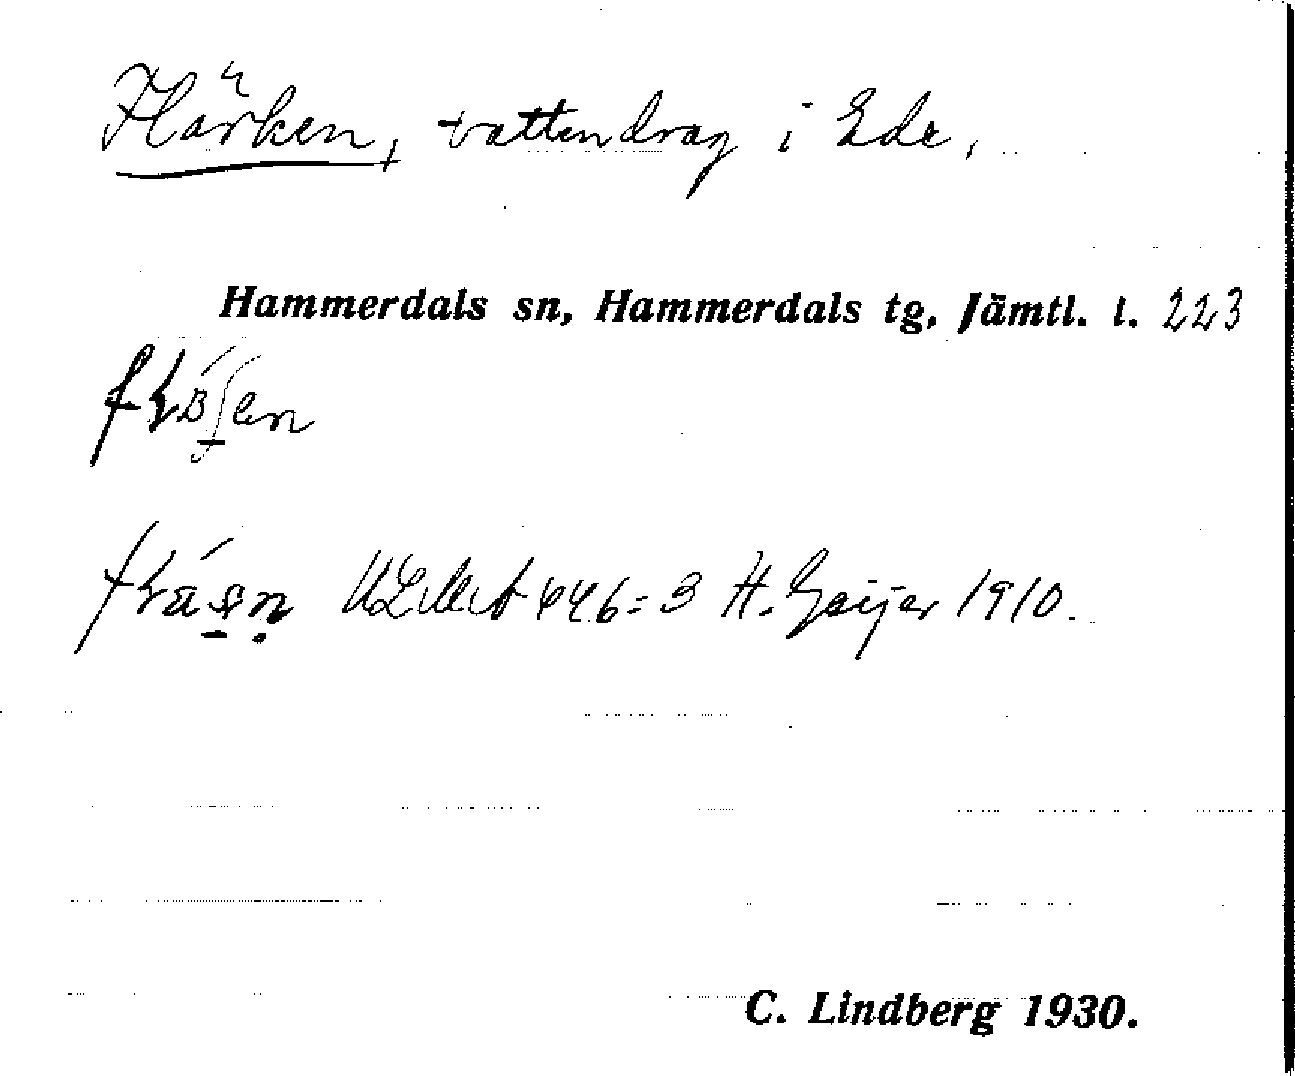 Flärken, vattendrag i Ede,
Hammerdals sn, Hammerdals tg, Jämtl. l. 223
446:3 H. Geijer 1910.
C. Lindberg 1930.